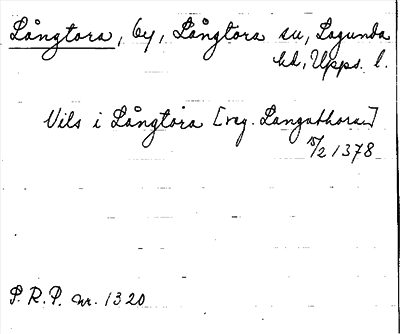 Långtora, by, Långtora su, Lagunda
hd, Upps. l.
Vils i Långtora [reg. Langathora]
5/2 1378
P.R.P. nr. 1320